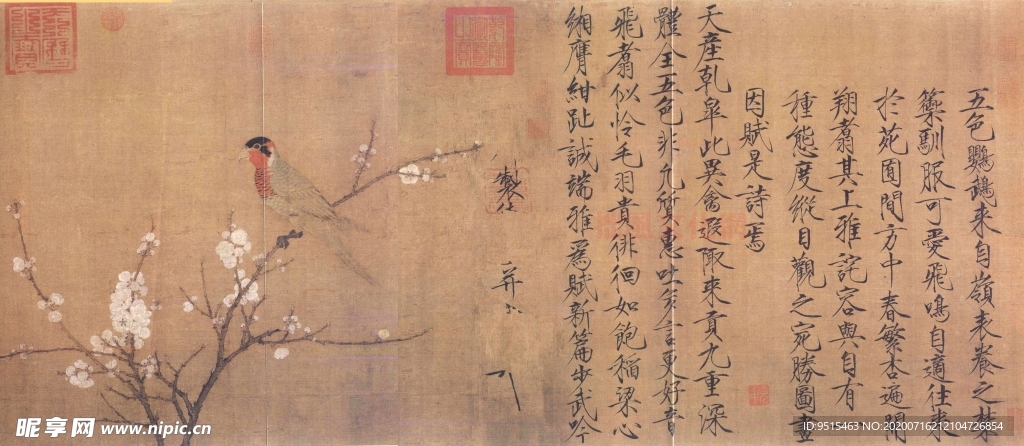 五色鸚鵡来自嶺表養之禁
籞馴服可愛飛鳴自適往来
於苑囿間方中春繁杏遍開
翔翥其上雅詫容與自有
種態度縱目觀之宛勝圖畫
因賦是詩焉
天產乾皋此異禽遐陬来貢九重深
體全五色非凡質惠吐多言更好音
飛翥似怜毛羽貴徘徊如飽稻粱心
緗膺紺趾誠端雅爲賦新篇步武吟
製
并
昵享网 www.nipic.cn
ID:9515463 NO:20200716212104726854